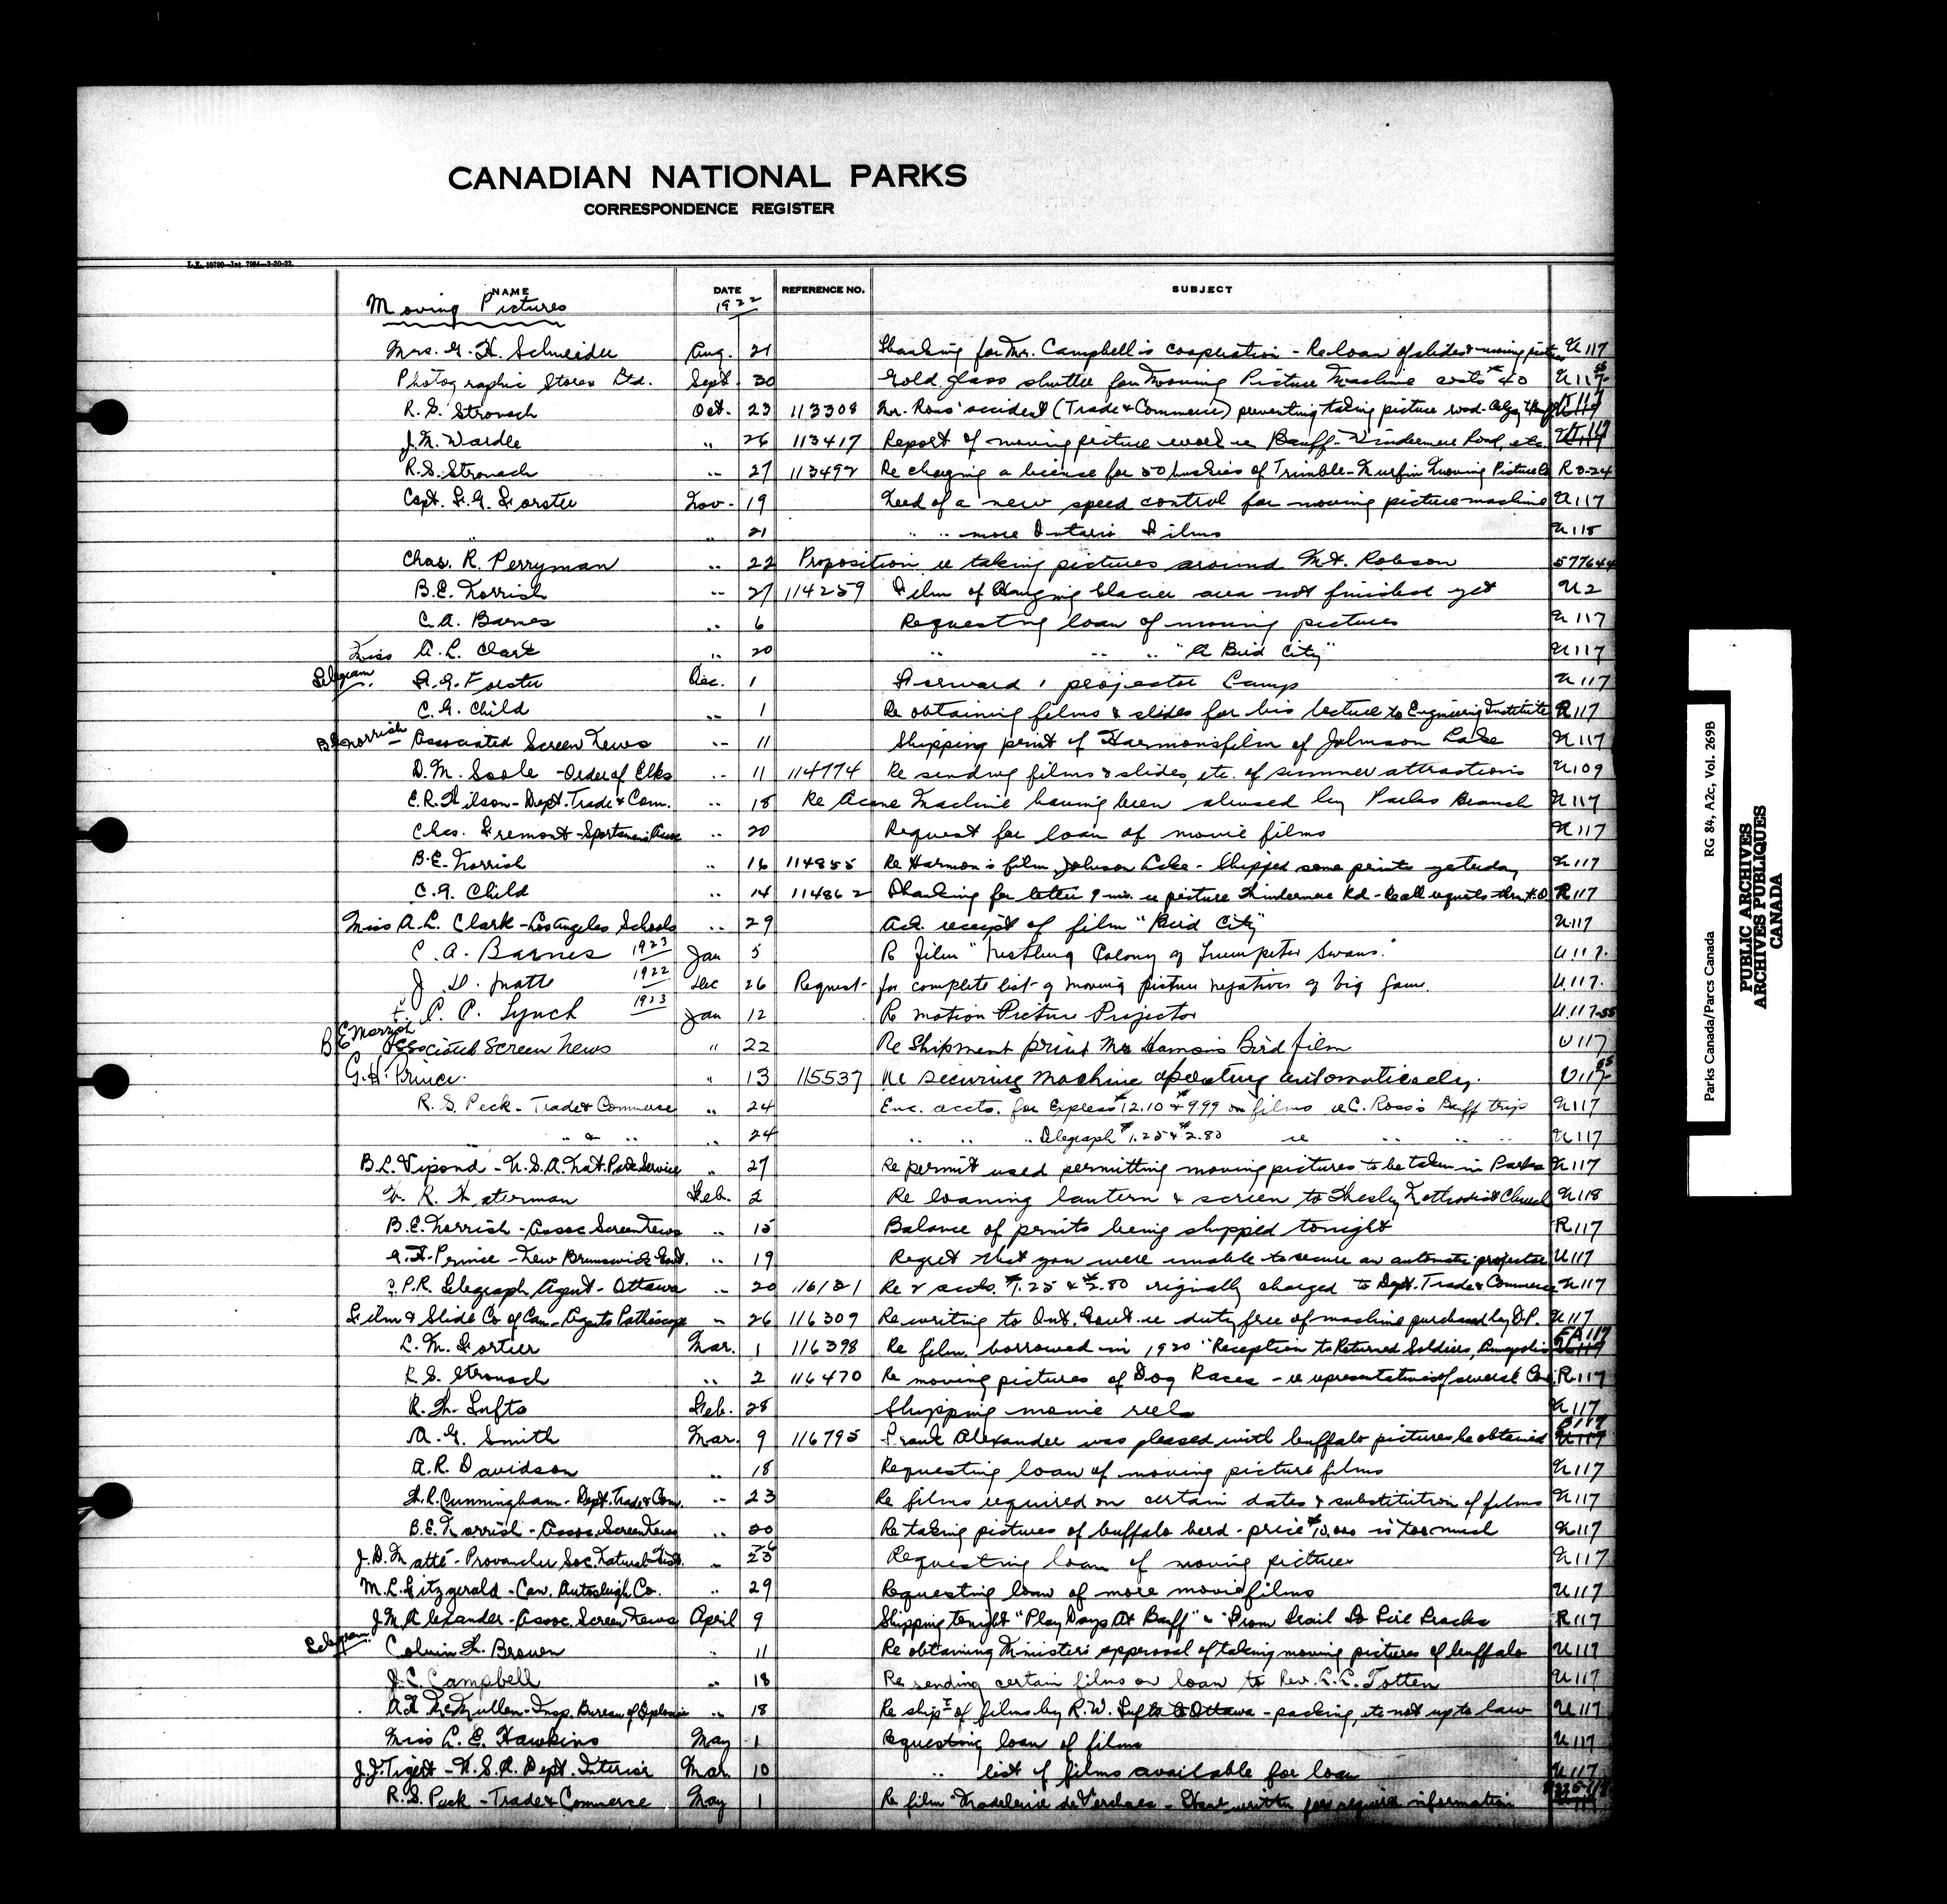 CANADIAN NATIONAL PARKS
CORRESPONDENCE REGISTER
NAME DATE REFERENCE NO. SUBJECT
Moving Pictures 1922
Mrs. G. H. Schneider Aug. 21 Thanking for Mr. Campbell's cooperation - Re loan of slides & moving pictures U 117
Photographic Stores Ltd. Sept. 30 Gold glass shutter for Moving Picture Machine costs $40 U 117-55
R. S. Stronach Oct. 23 113308 Mr. Ross' accident (Trade & Commerce) preventing taking picture road - Calgary
J. M. Wardle " 26 113417 Report of moving picture work in Banff-Windermere Road, etc. U 117
R. S. Stronach " 27 113492 Re charging a license for business of Trimble-Murfin Moving Picture Co R 3-24
Capt. F. G. Forster Nov. 19 Need of a new speed control for moving picture machine U 117
" " 21 " " more Ontario Films U 118
Chas. R. Perryman " 22 Proposition re taking pictures around Mt. Robson 577644
B.E. Norrish " 27 114259 Film of Hanging Glacier area not finished yet U 2
C.A. Barnes " 6 Requesting loan of moving pictures U 117
Miss A. L. Clark " 20 " " " "A Bird City" U 117
Telegram F. G. Forster Dec. 1 Forward 1 projector Lamp U 117
C. G. Child " 1 Re obtaining films & slides for his lecture to Engineering Institute R 117
B.E. Norrish - Associated Screen News " 11 Shipping print of Harmon's film of Johnson Lake U 117
D. M. Soole - Order of Elks " 11 114774 Re sending films & slides, etc. of summer attractions U 109
E.R. Wilson - Dept. Trade & Com. " 18 Re Acme Machine having been abused by Parks Branch U 117
Chas. Fremont - Sportsmen's Assoc " 20 Request for loan of movie films U 117
B.E. Norrish " 16 114855 Re Harmon's film Johnson Lake - Shipped some prints yesterday U 117
C. G. Child " 14 114862 Thanking for letter 9 inst. re picture Windermere Rd - R 117
Miss A. L. Clark - Los Angeles Schools " 29 Ack. receipt of film "Bird City" U 117
C. A. Barnes 1923 Jan 5 Re film "Nestling Colony of Trumpeter Swans." U 117.
J. D. Matte 1922 Dec 26 Request for complete list of moving picture negatives of big game. U 117.
F. P. C. Lynch 1923 Jan 12 Re motion Picture Projector U 117-55
B E Norrish Associated Screen News " 22 Re Shipment print Mr Harmon's Bird film U 117
G.H. Prince. " 13 115537 Re securing machine operating automatically. U 117-55
R. S. Peck - Trade & Commerce " 24 Enc. accts. for Express $12.10 & $9.99 on films re C. Ross's Banff trip U 117
" & " " 24 " " " Telegraph $1.25 & $2.80 re " " " U 117
B.L. Vipond - U.S.A. Nat. Park Service " 27 Re permit used permitting moving pictures to be taken in Parks U 117
R. Waterman Feb. 2 Re loaning lantern & screen to Wesley Methodist Church U 118
B.E. Norrish - Assoc Screen News " 15 Balance of prints being shipped tonight R 117
G.H. Prince - New Brunswick Govt. " 19 Regret that you were unable to secure an automatic projector U 117
C.P.R. Telegraph Agent - Ottawa " 20 116181 Re 2 accts. $1.25 & $2.80 originally charged to Dept. Trade & Commerce U 117
Film & Slide Co of Can - Agents Pathescope " 26 116309 Re writing to Ont. Govt. re duty free of machine purchased by D.P. U 117
L. M. Fortier Mar. 1 116398 Re film borrowed in 1920 "Reception to Returned Soldiers, Annapolis FA 117
R. S. Stronach " 2 116470 Re moving pictures of Dog Races - re representatives of several Cos. R 117
R. W. Tufts Feb. 28 Shipping movie reels U 117
A. G. Smith Mar. 9 116795 Frank Alexander was pleased with buffalo pictures he obtained B 117
A.R. Davidson " 18 Requesting loan of moving picture films U 117
Cunningham - Dept. Trade & Com. " 23 Re films required on certain dates & substitution of films U 117
B.E. Norrish - Assoc. Screen News " 20 Re taking pictures of buffalo herd - price $10,000 is too much U 117
J.D. Matté - Provancher Soc. Natural Hist. " Requesting loan of moving pictures U 117
M.L. Fitzgerald - Can. Autosleigh Co. " 29 Requesting loan of more movie films U 117
J.M. Alexander - Assoc. Screen News April 9 Shipping tonight "Play Days At Banff" & "From Trail To Rail Tracks R 117
Telegram Colvin W. Brown " 11 Re obtaining Minister's approval of taking moving pictures of buffalo U 117
J.C. Campbell " 18 Re sending certain films on loan to Rev. Totten U 117
McMullen - Insp. Bureau of Explosives " 18 Re shipt of films by R.W. Tufts to Ottawa - packing, etc not up to law U 117
Miss A. E. Hawkins May 1 Requesting loan of films U 117
J.J. Tigert - U.S.A. Dept. Interior Mar. 10 " list of films available for loan U 117
R. S. Peck - Trade & Commerce May 1 Re film "Madeleine de Verchères - Have written for information
PUBLIC ARCHIVES
ARCHIVES PUBLIQUES
CANADA
Parks Canada/Parcs Canada RG 84, A2c, Vol. 269B